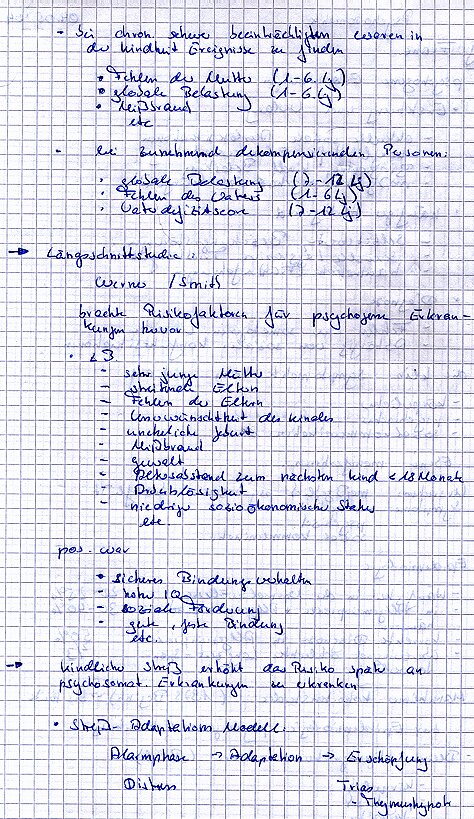 - bei chron. schwer beeinträchtigten waren in
der Kindheit Ereignisse zu finden
• Fehlen der Mutter (1-6 Lj)
• globale Belastung (1-6 Lj)
• Mißbrauch
etc
- bei zunehmend dekompensierenden Personen:
• globale Belastung (7-12 Lj)
• Fehlen des Vaters (1-6 Lj)
• Vaterdefizitscore (7-12 Lj)
→ Längsschnittstudie:
Werner / Smith
brachte Risikofaktoren für psychogene Erkran-
kungen hervor
• z.B.
- sehr junge Mütter
- streitende Eltern
- Fehlen der Eltern
- Unerwünschtheit des Kindes
- uneheliche Geburt
- Mißbrauch
- Gewalt
- Altersabstand zum nächsten Kind < 18 Monate
- niedriger sozioökonomischer Status
etc.
pos. war
• sicheres Bindungsverhalten
- hoher IQ
- soziale Förderung
- gute, feste Bindung
etc.
→ kindlicher Streß erhöht das Risiko später an
psychosomat. Erkrankungen zu erkranken
• Streß-Adaptations Modell:
Alarmphase → Adaptation → Erschöpfung
Distress Trias